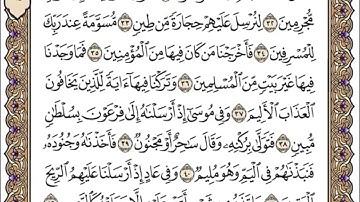 مُّجْرِمِينَ ٣٢ لِنُرْسِلَ عَلَيْهِمْ حِجَارَةً مِّن طِينٍ ٣٣ مُّسَوَّمَةً عِندَ رَبِّكَ
لِلْمُسْرِفِينَ ٣٤ فَأَخْرَجْنَا مَن كَانَ فِيهَا مِنَ ٱلْمُؤْمِنِينَ ٣٥ فَمَا وَجَدْنَا
فِيهَا غَيْرَ بَيْتٍ مِّنَ ٱلْمُسْلِمِينَ ٣٦ وَتَرَكْنَا فِيهَآ ءَايَةً لِّلَّذِينَ يَخَافُونَ
ٱلْعَذَابَ ٱلْأَلِيمَ ٣٧ وَفِى مُوسَىٰٓ إِذْ أَرْسَلْنَٰهُ إِلَىٰ فِرْعَوْنَ بِسُلْطَٰنٍ
مُّبِينٍ ٣٨ فَتَوَلَّىٰ بِرُكْنِهِۦ وَقَالَ سَٰحِرٌ أَوْ مَجْنُونٌ ٣٩ فَأَخَذْنَٰهُ وَجُنُودَهُۥ
فَنَبَذْنَٰهُمْ فِى ٱلْيَمِّ وَهُوَ مُلِيمٌ ٤٠ وَفِى عَادٍ إِذْ أَرْسَلْنَا عَلَيْهِمُ ٱلرِّيحَ